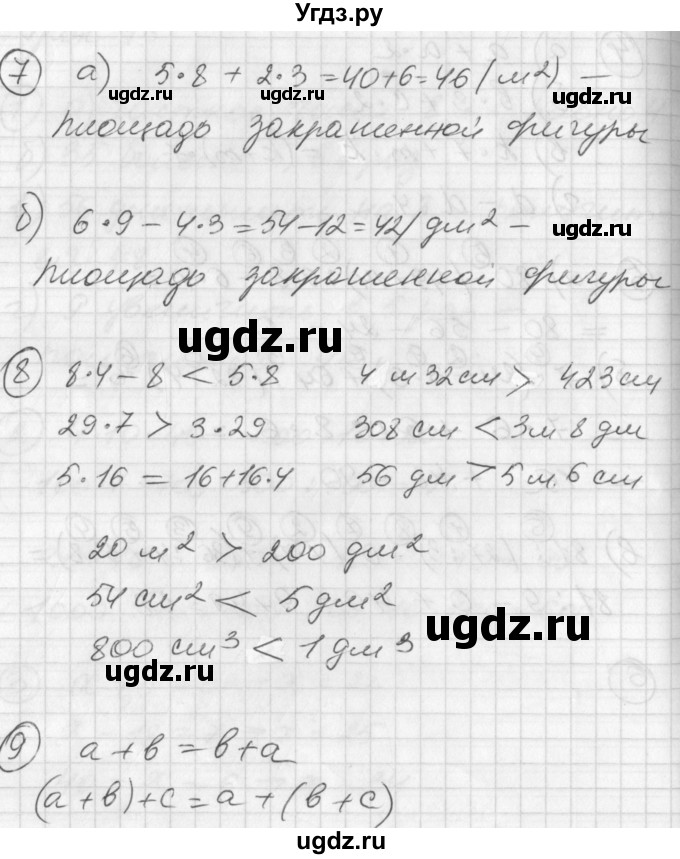 Угдз.ру
7 а) 5·8 + 2·3 = 40+6 = 46 (м²) —
площадь закрашенной фигуры
ugdz.ru ugdz.ru ugdz.ru
б) 6·9 – 4·3 = 54–12 = 42/дм² –
ugdz.ru
площадь закрашенной фигуры
ugdz.ru
8 8·4 – 8 < 5·8 4 м 32 см > 423 см
29·7 > 3·29 308 см < 3м 8 дм
5·16 = 16+16·4 56 дм > 5 м. 6 см
20 м² > 200 дм²
54 см² < 5 дм²
ugdz.ru
800 см³ < 1 дм³
ugdz.ru
9 a + b = b + a
(a + b) + c = a + (b + c)
ugdz.ru